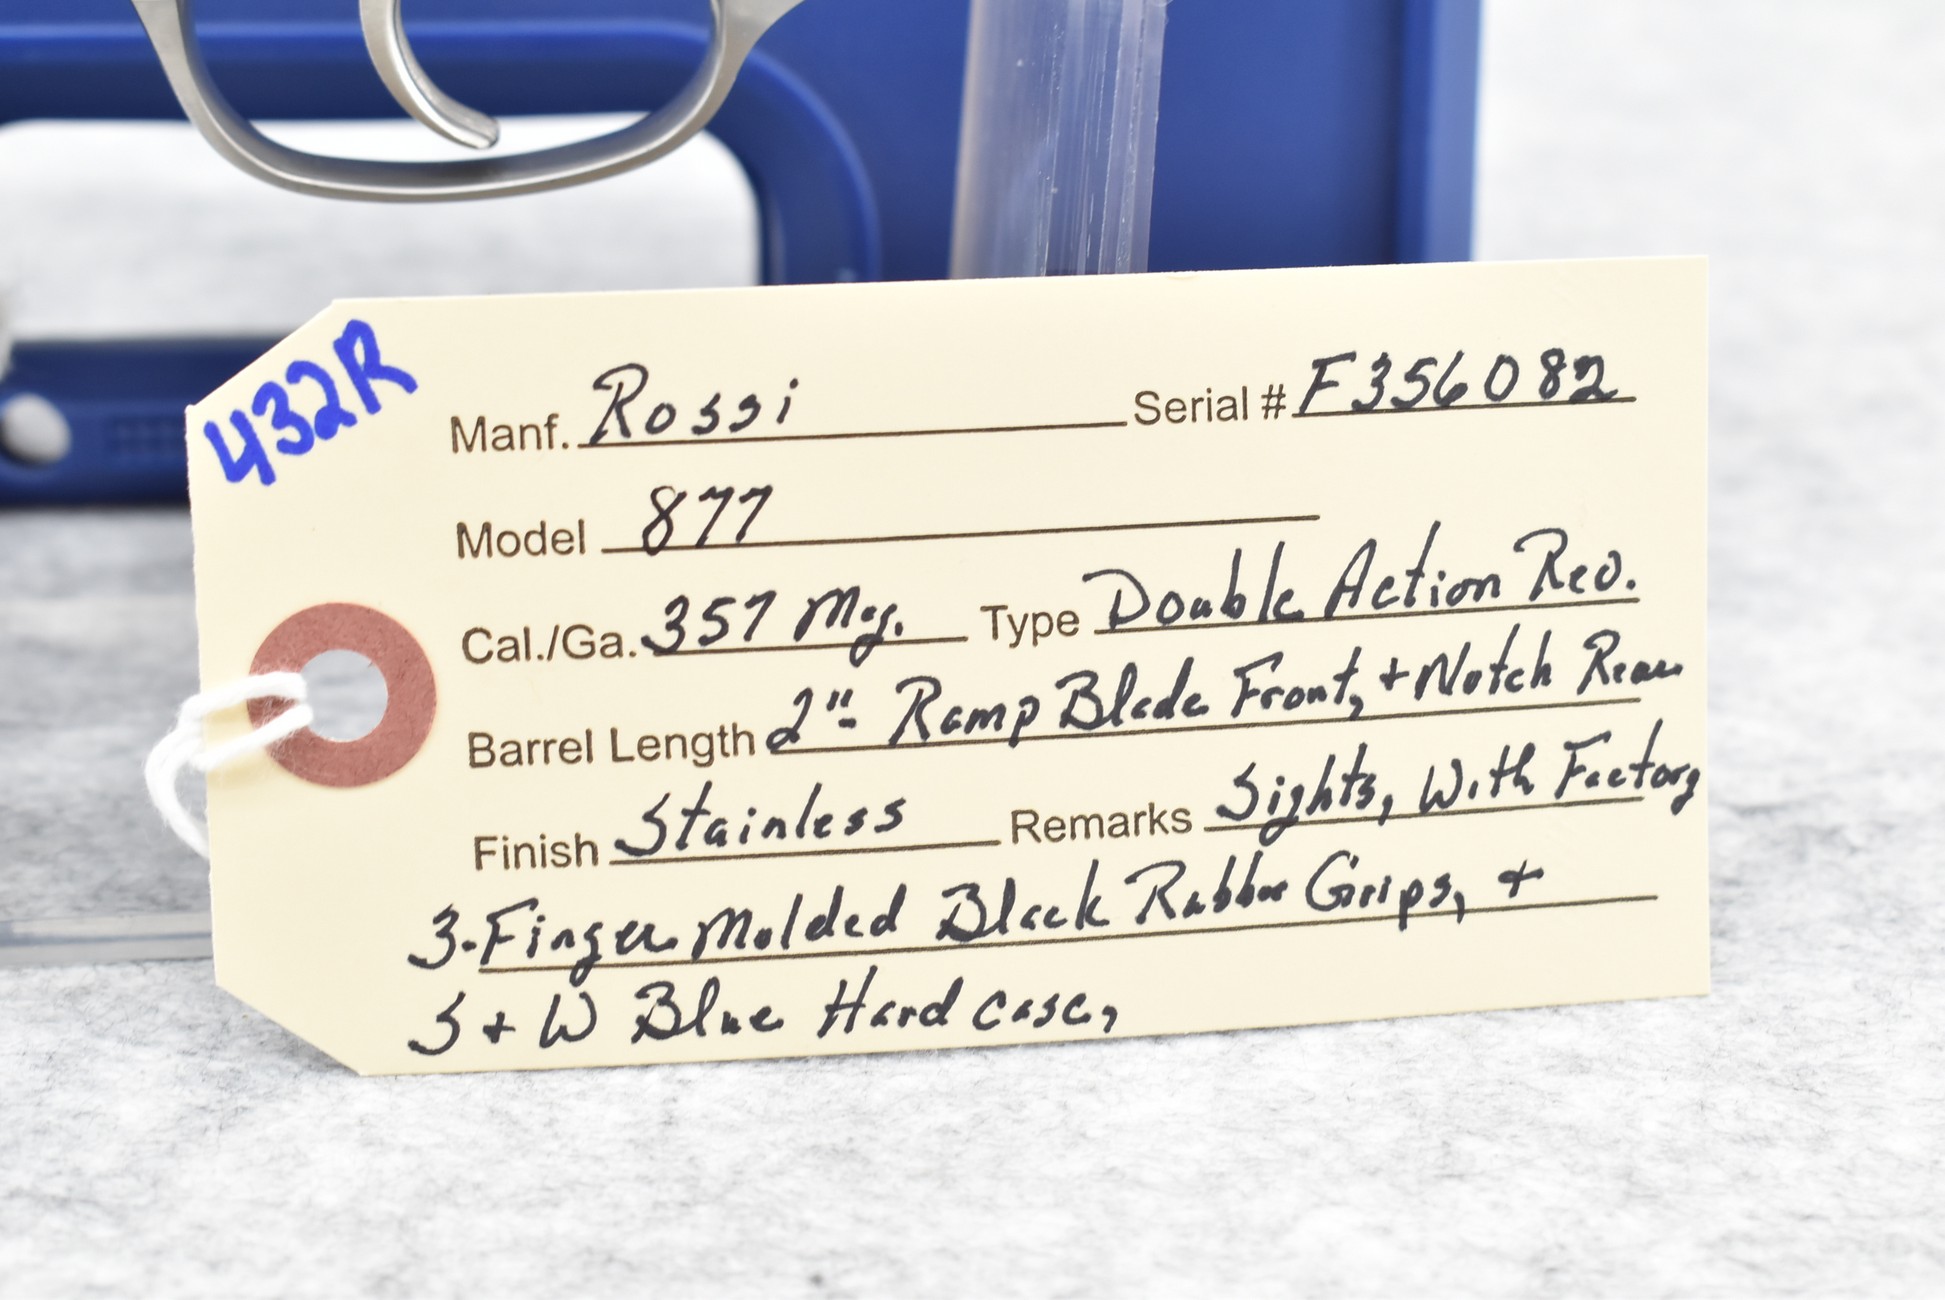 432R
Manf. Rossi Serial # F356082
Model 877
Cal./Ga. 357 Mag. Type Double Action Rev.
Barrel Length 2"- Ramp Blade Front, + Notch Rear
Finish Stainless Remarks Sights, With Factory
3-Finger Molded Black Rubber Grips, +
S + W Blue Hard case,